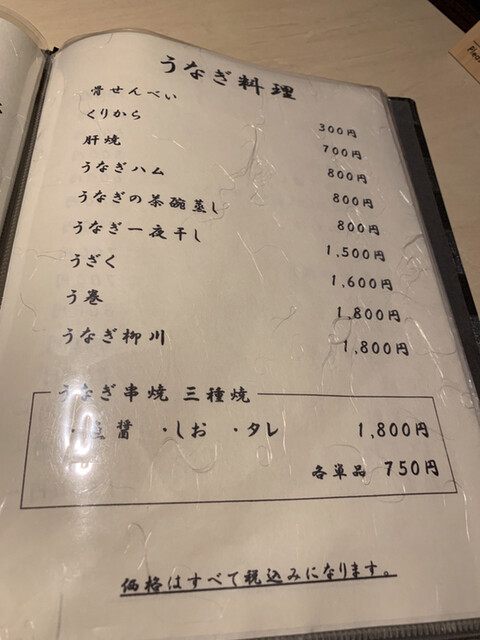 うなぎ料理
骨せんべい 300円
くりから 700円
肝焼 800円
うなぎハム 800円
うなぎの茶碗蒸し 800円
うなぎ一夜干し 1,500円
うざく 1,600円
う巻 1,800円
うなぎ柳川 1,800円
うなぎ串焼 三種焼
醤 ・しお ・タレ 1,800円
各単品 750円
価格はすべて税込みになります。